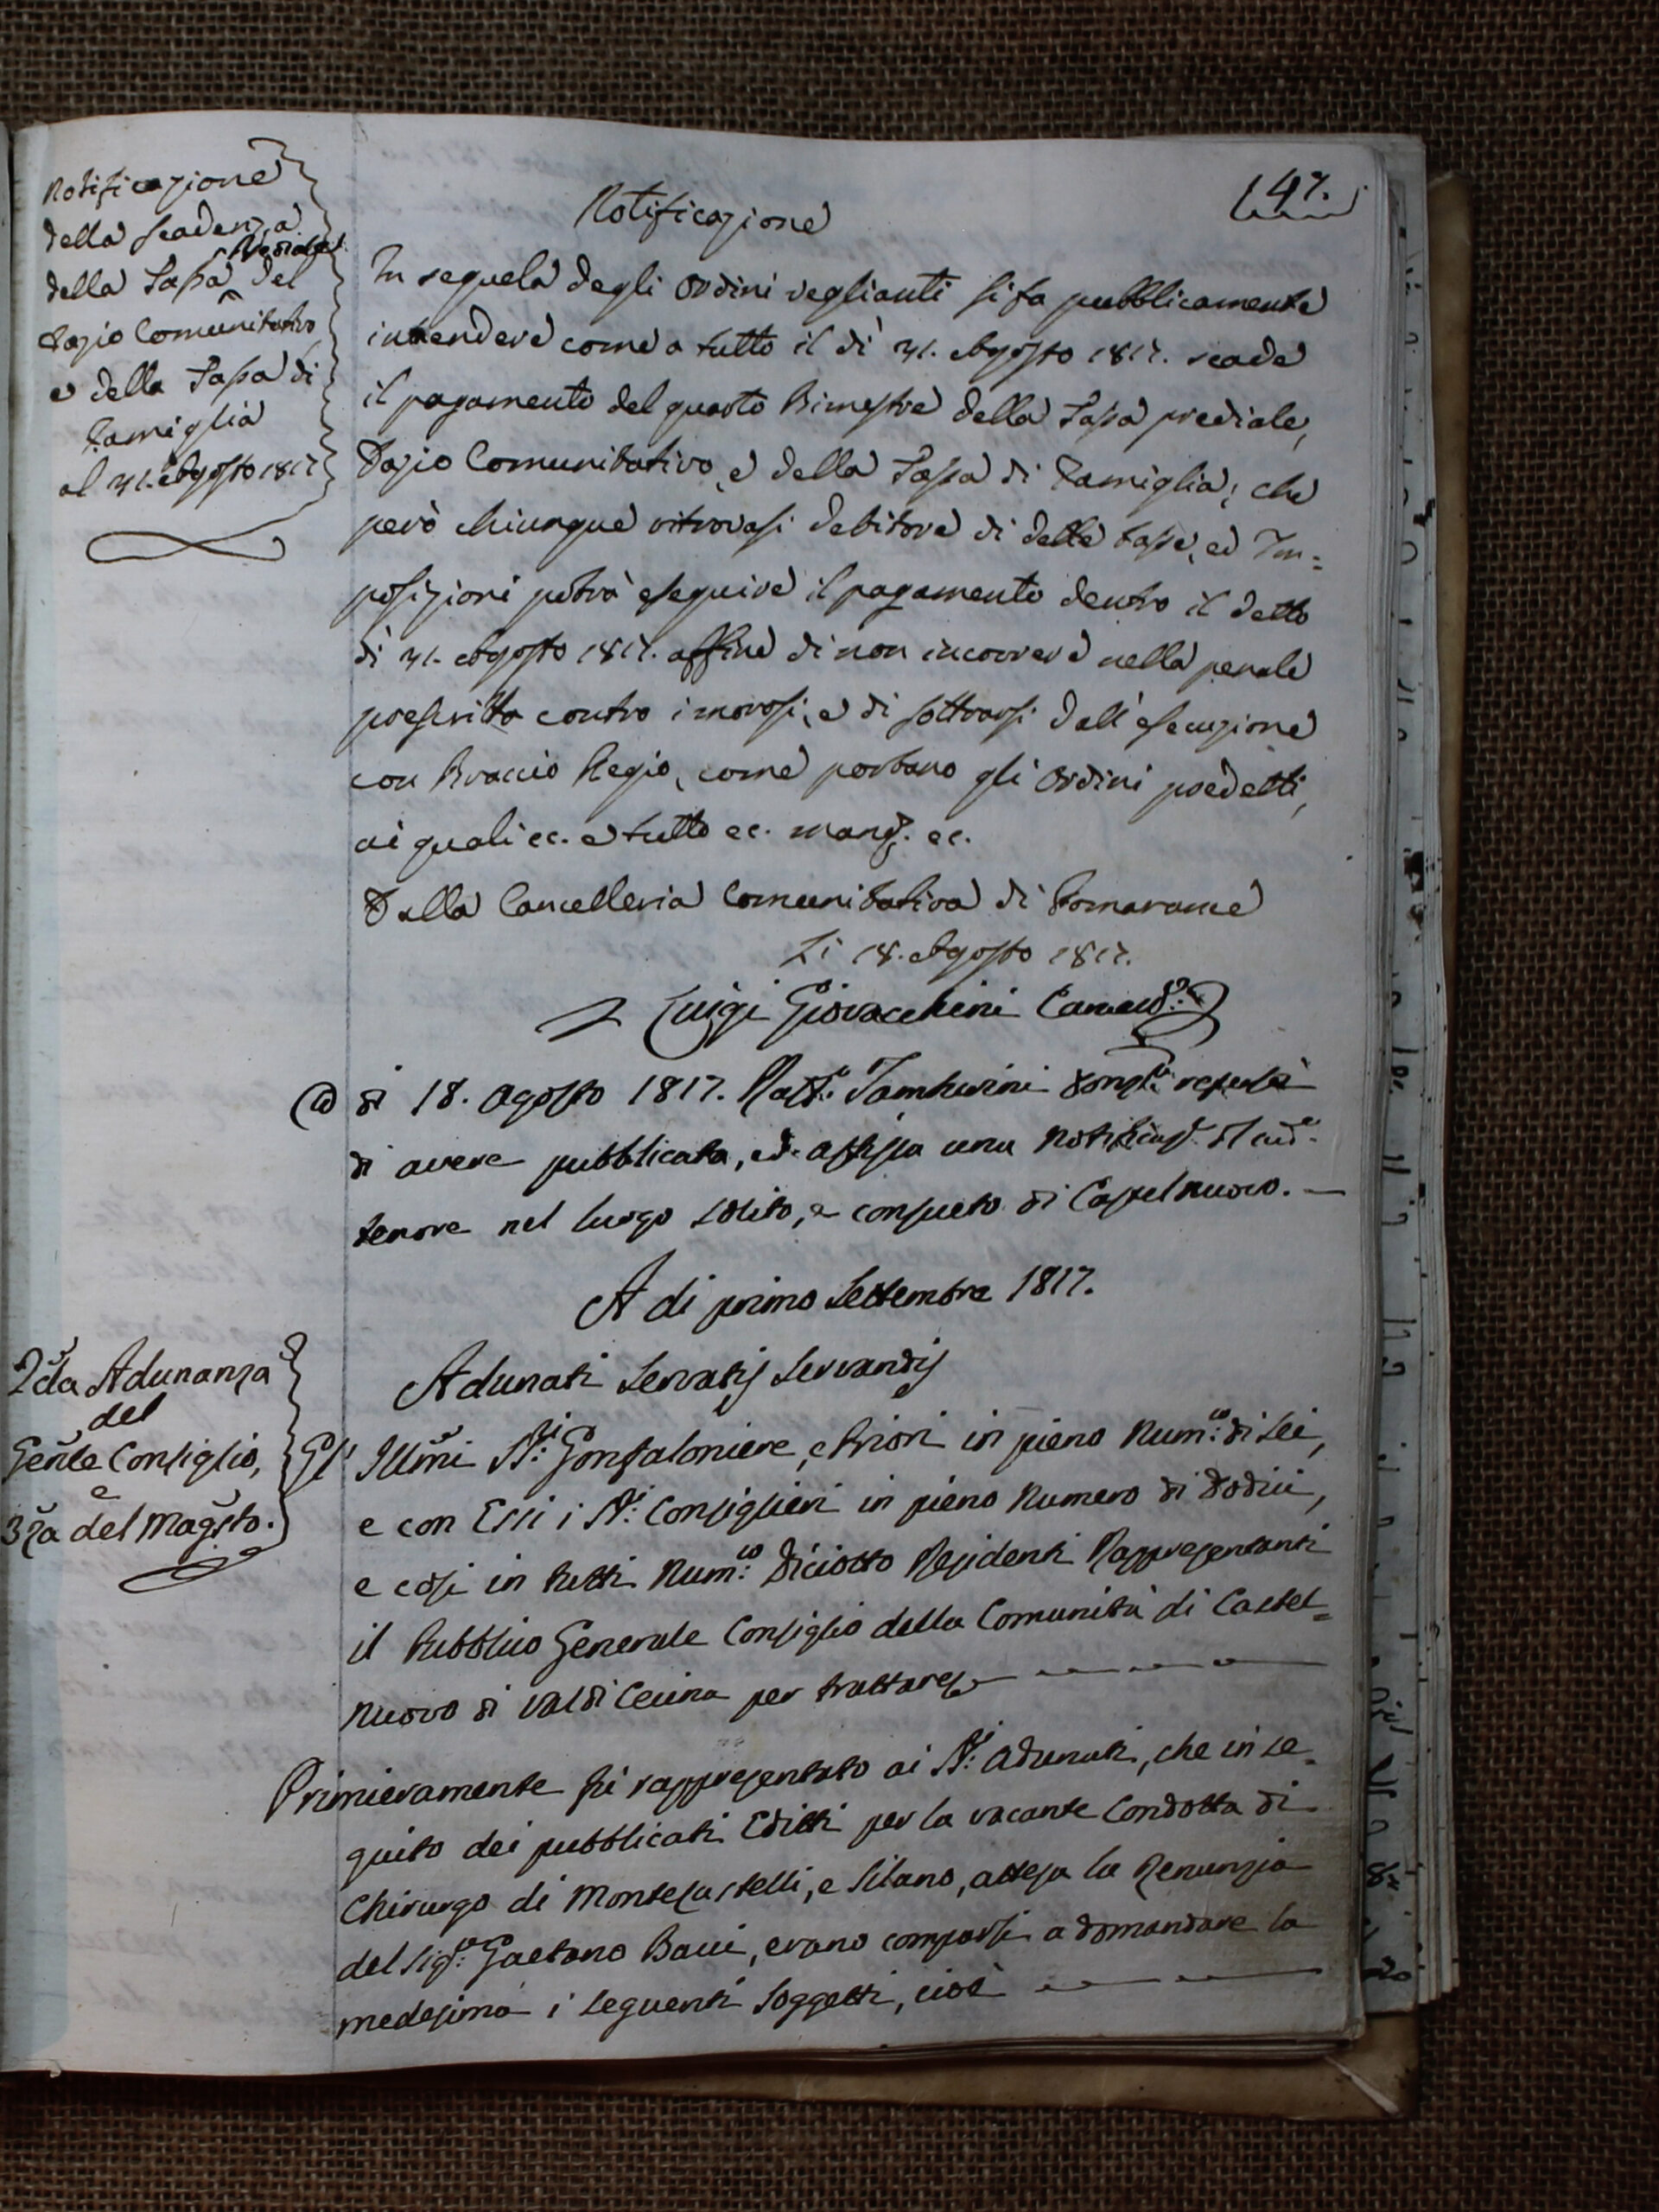 147.
Notificazione
della scadenza
della Tassa Prediale del
Dazio Comunitativo
e della Tassa di
Famiglia
al 31. Agosto 1817
Notificazione
In sequela degli Ordini veglianti si fa pubblicamente
intendere come a tutto il dì 31. Agosto 1817. scade
il pagamento del quarto Bimestre della Tassa prediale,
Dazio Comunitativo, e della Tassa di Famiglia; che
però chiunque ritrovasi debitore di dette tasse, ed Im=
posizioni potrà eseguire il pagamento dentro il detto
dì 31. Agosto 1817. affine di non incorrere nella penale
prescritta contro i morosi, e di sottrarsi dall'esecuzione
con Braccio Regio, come portano gli Ordini predetti,
ai quali ec. e tutto ec. mand. ec.
Dalla Cancelleria Comunitativa di Pomarance
Li 18. Agosto 1817.
Luigi Giovacchini Canc.
A dì 18. Agosto 1817. Tamburini
di avere pubblicata, ed affissa una Notificaz.
tenore nel luogo solito, e consueto di Castelnuovo. —
A di primo Settembre 1817.
2da Adunanza
del
Genle Consiglio,
e
3za del Magsto.
Adunati Servatis Servandis
Gl' Illmi SSi: Gonfaloniere, e Priori in pieno Numco: di Sei,
e con Essi i SSi: Consiglieri in pieno Numero di Dodici,
e così in tutti Numco: Diciotto Residenti Rappresentanti
il Pubblico Generale Consiglio della Comunità di Castel=
nuovo di Val di Cecina per trattare
Primieramente fù rappresentato ai SSi: Adunati, che in se=
guito dei pubblicati Editti per la vacante Condotta di
Chirurgo di Montecastelli, e Silano, attesa la Renunzia
del Sigre: Gaetano Bacci, erano comparsi a domandare la
medesima i seguenti Soggetti, cioè